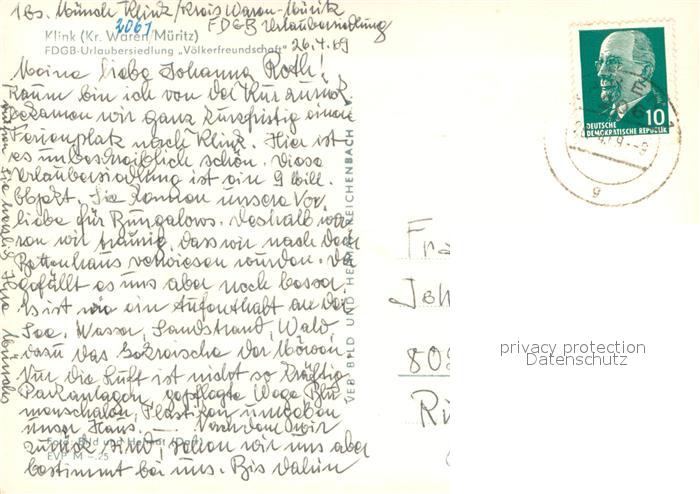 Abs. Münch Klink/Kreis Waren-Müritz
2061 FDGB Urlaubersiedlung
Klink (Kr. Waren/Müritz)
FDGB-Urlaubersiedlung „Völkerfreundschaft"
26.4.69
Meine liebe Johanna Roth!
Kaum bin ich von der Kur zurück
bekamen wir ganz kurzfristig einen
Ferienplatz nach Klink. Hier ist
es unbeschreiblich schön. Diese
Urlaubersiedlung ist ein 9 Mill.
Objekt. Sie kennen unsere Vor-
liebe für Bungalows. Deshalb wa-
ren wir traurig, dass wir nach dem
Bettenhaus verwiesen wurden. Da
gefällt es uns aber noch besser.
Es ist wie ein Aufenthalt an der
See. Wasser, Sandstrand, Wald
dazu das Gekreische der Möwen
Nur die Luft ist nicht so kräftig
Parkanlagen, gepflegte Wege Blu
menschalen, Plastiken umgeben
unser Haus. – Nachdem wir
zurück sind, sehen wir uns aber
bestimmt bei uns. Bis dahin
Sie herzlich Ihre
Foto: Bild und Heimat
EVP M –.25
VEB BILD UND HEIMAT REICHENBACH
10
DEUTSCHE
DEMOKRATISCHE REPUBLIK
g
Fra
Joh
802
Ri
privacy protection
Datenschutz